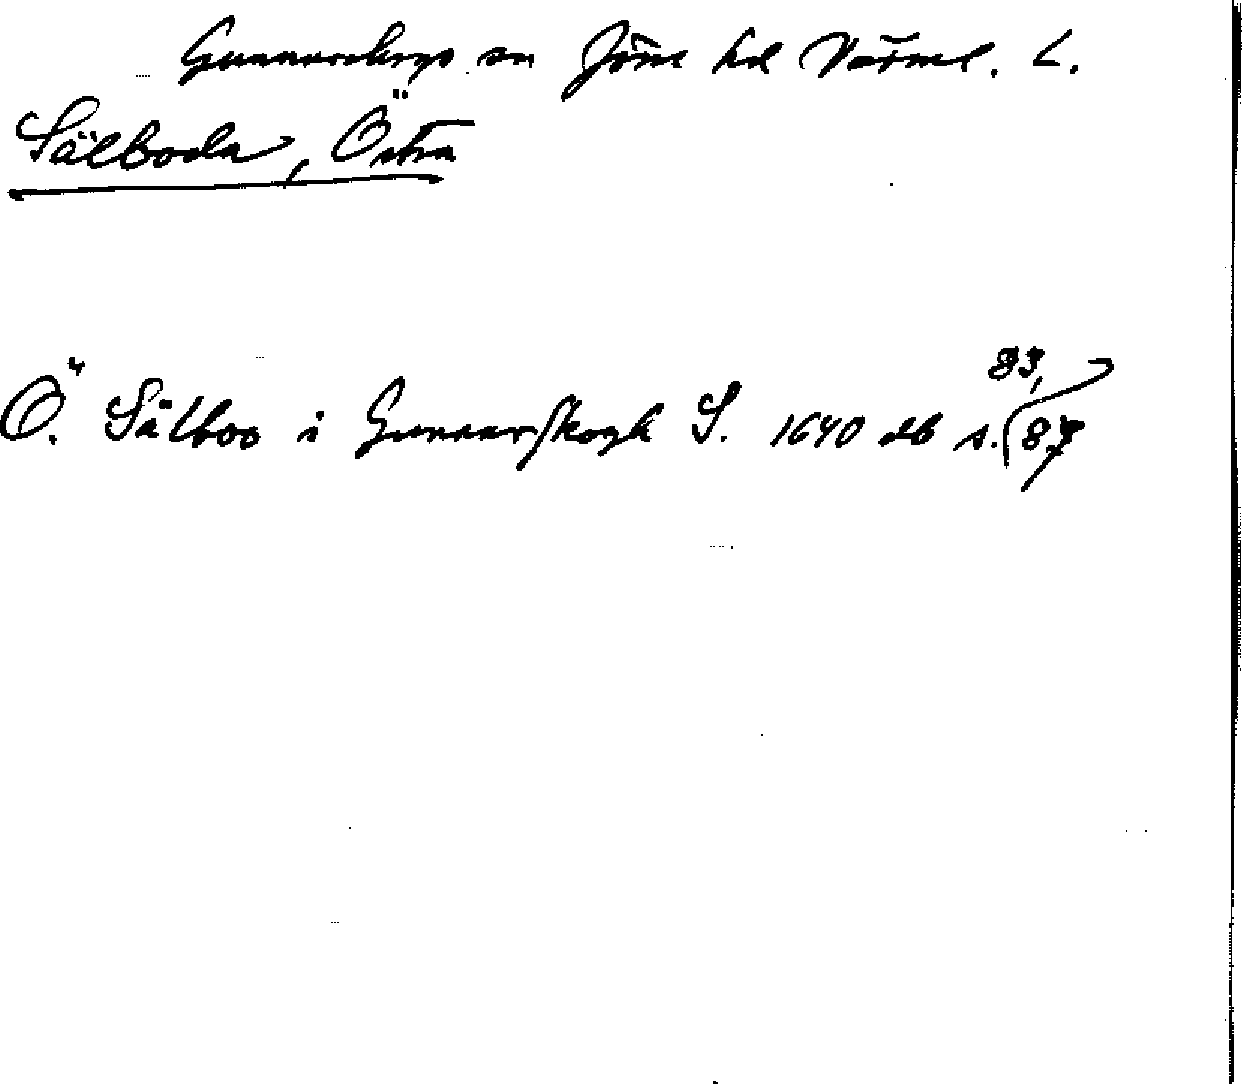 Gunnarskogs sn Jösse hd Värml. L.
Sälboda, Östra
83,
Ö. Sälboo i Gunnarskogh S. 1640 db s. 87